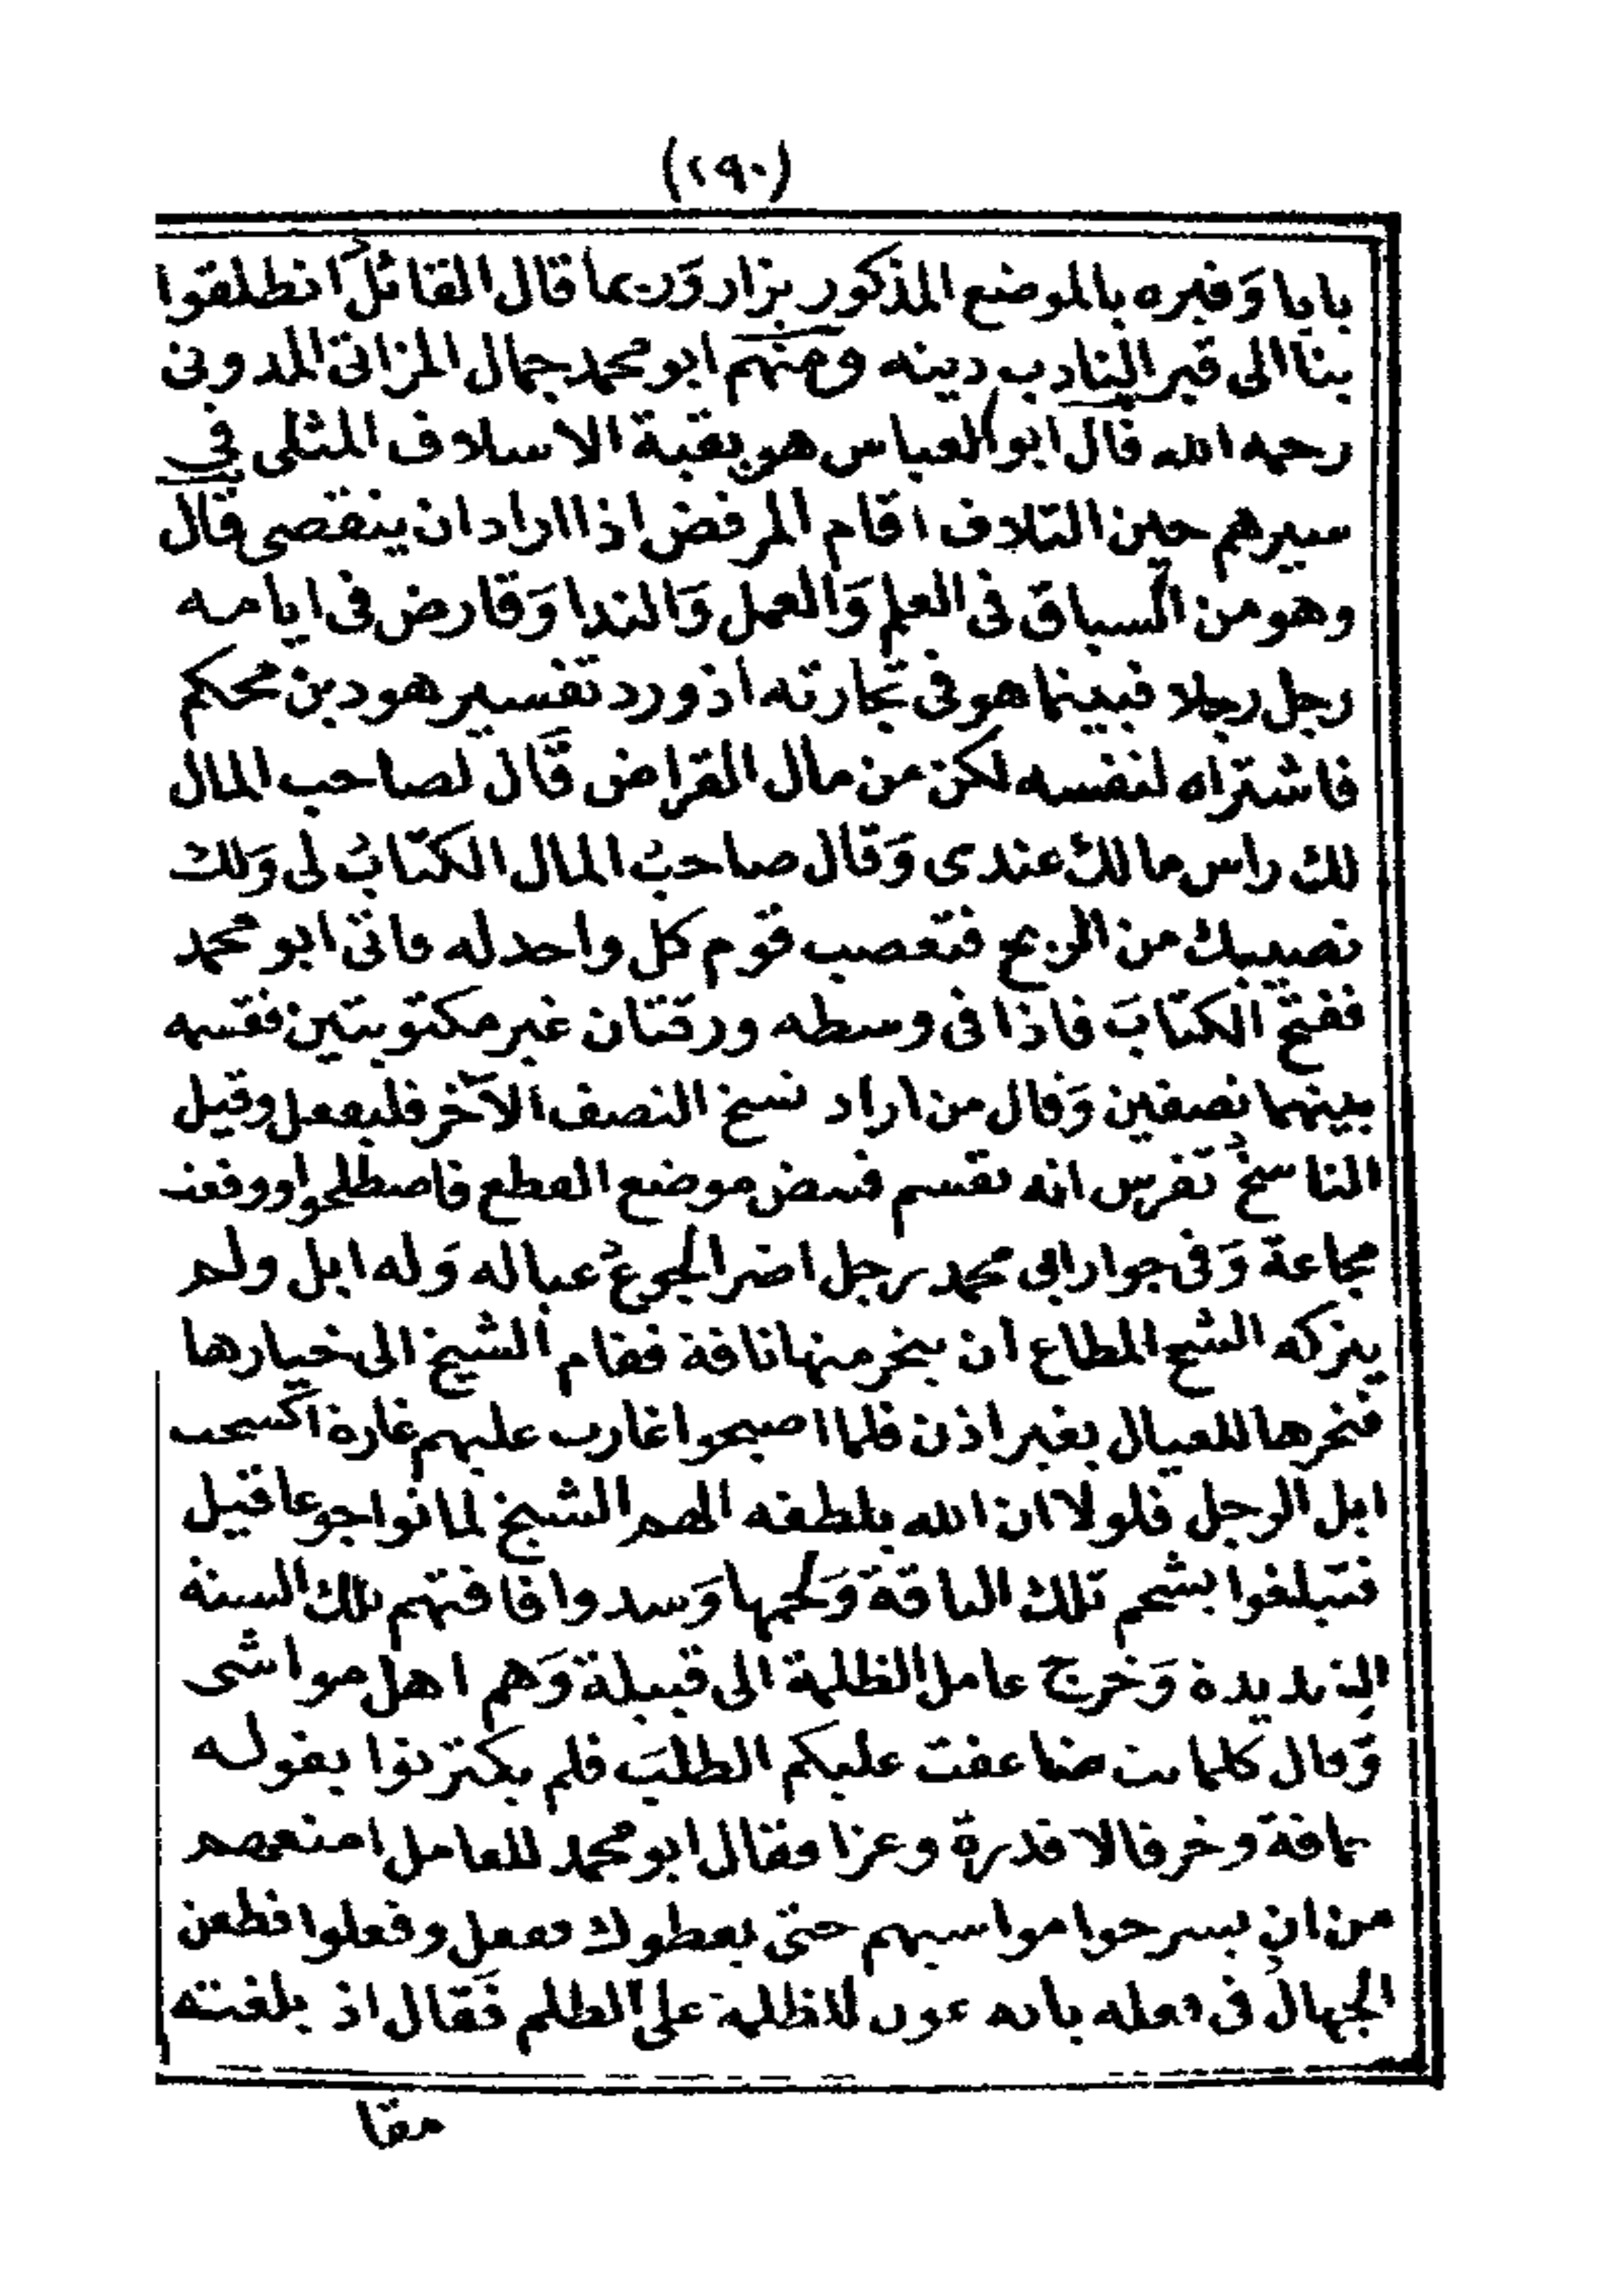 (٢٩٠)
بابا وَقبره بالموضع المذكور يزار وَربما قال القائلُ انطلقوا
بنا الى قبر النادب دينه ومنهم ابو محمد جمال المزاتى المدونى
رحمه الله قال ابو العباس هو بقية الاسلاف المثلى في
سيرهم حين التلاف اقام المرفض اذا اراد ان ينقصى قال
وهو من السباق فى العلم وَالعمل وَالندا وَقارض فى ايامه
رجل رجلا فبينما هو فى تجارته اذ ورد تفسير هود بن محكم
فاشتراه لنفسه لكن من مال القراض قَال لصاحب المال
لك راس مالك عندى وَقال صاحبُ المال الكتابُ لى وَلك
نصيبك من الربح فتعصب قوم كل واحد له فاتى ابو محمد
ففتح الكتابَ فاذا فى وسطه ورقتان غير مكتوبتين فقسمه
بينهما نصفين وَقال من اراد نسخ النصف الآخر فليفعل وقيل
الناسخُ تفرس انه يقسم فبيض موضع القطع فاصطلحوا ووقعت
مجاعة وَفى جوار ابى محمد رجل اضر الجوعُ عياله وَله ابل ولم
يتركه الشح المطاع ان ينحر منها ناقة فقام الشيخ الى خيارها
فنحرها للعيال بغير اذن فلما اصبحوا اغارت عليهم غارة اكسحت
ابل الرجل فلولا ان الله بلطفه الهم الشيخ لماتوا جوعا قيل
فتبلغوا بشحم تلك الناقة وَلحمها وَسدوا فاقتهم تلك السنة
الشديدة وَخرج عامل الظلمة الى قبيلة وَهم اهل مواشى
وَقال كلما بت ضاعفت عليكم الطلبَ فلم يكترثوا بقوله
وخرفا لا قدرة وعزا فقال ابو محمد للعامل امنعهم
من ان يسرحوا مواشيهم حتى يعطوك ففعل وفعلوا فطعن
الجهال فى فعله بانه عون للظلمة على الظلم فَقال اذ بلغته
مقا